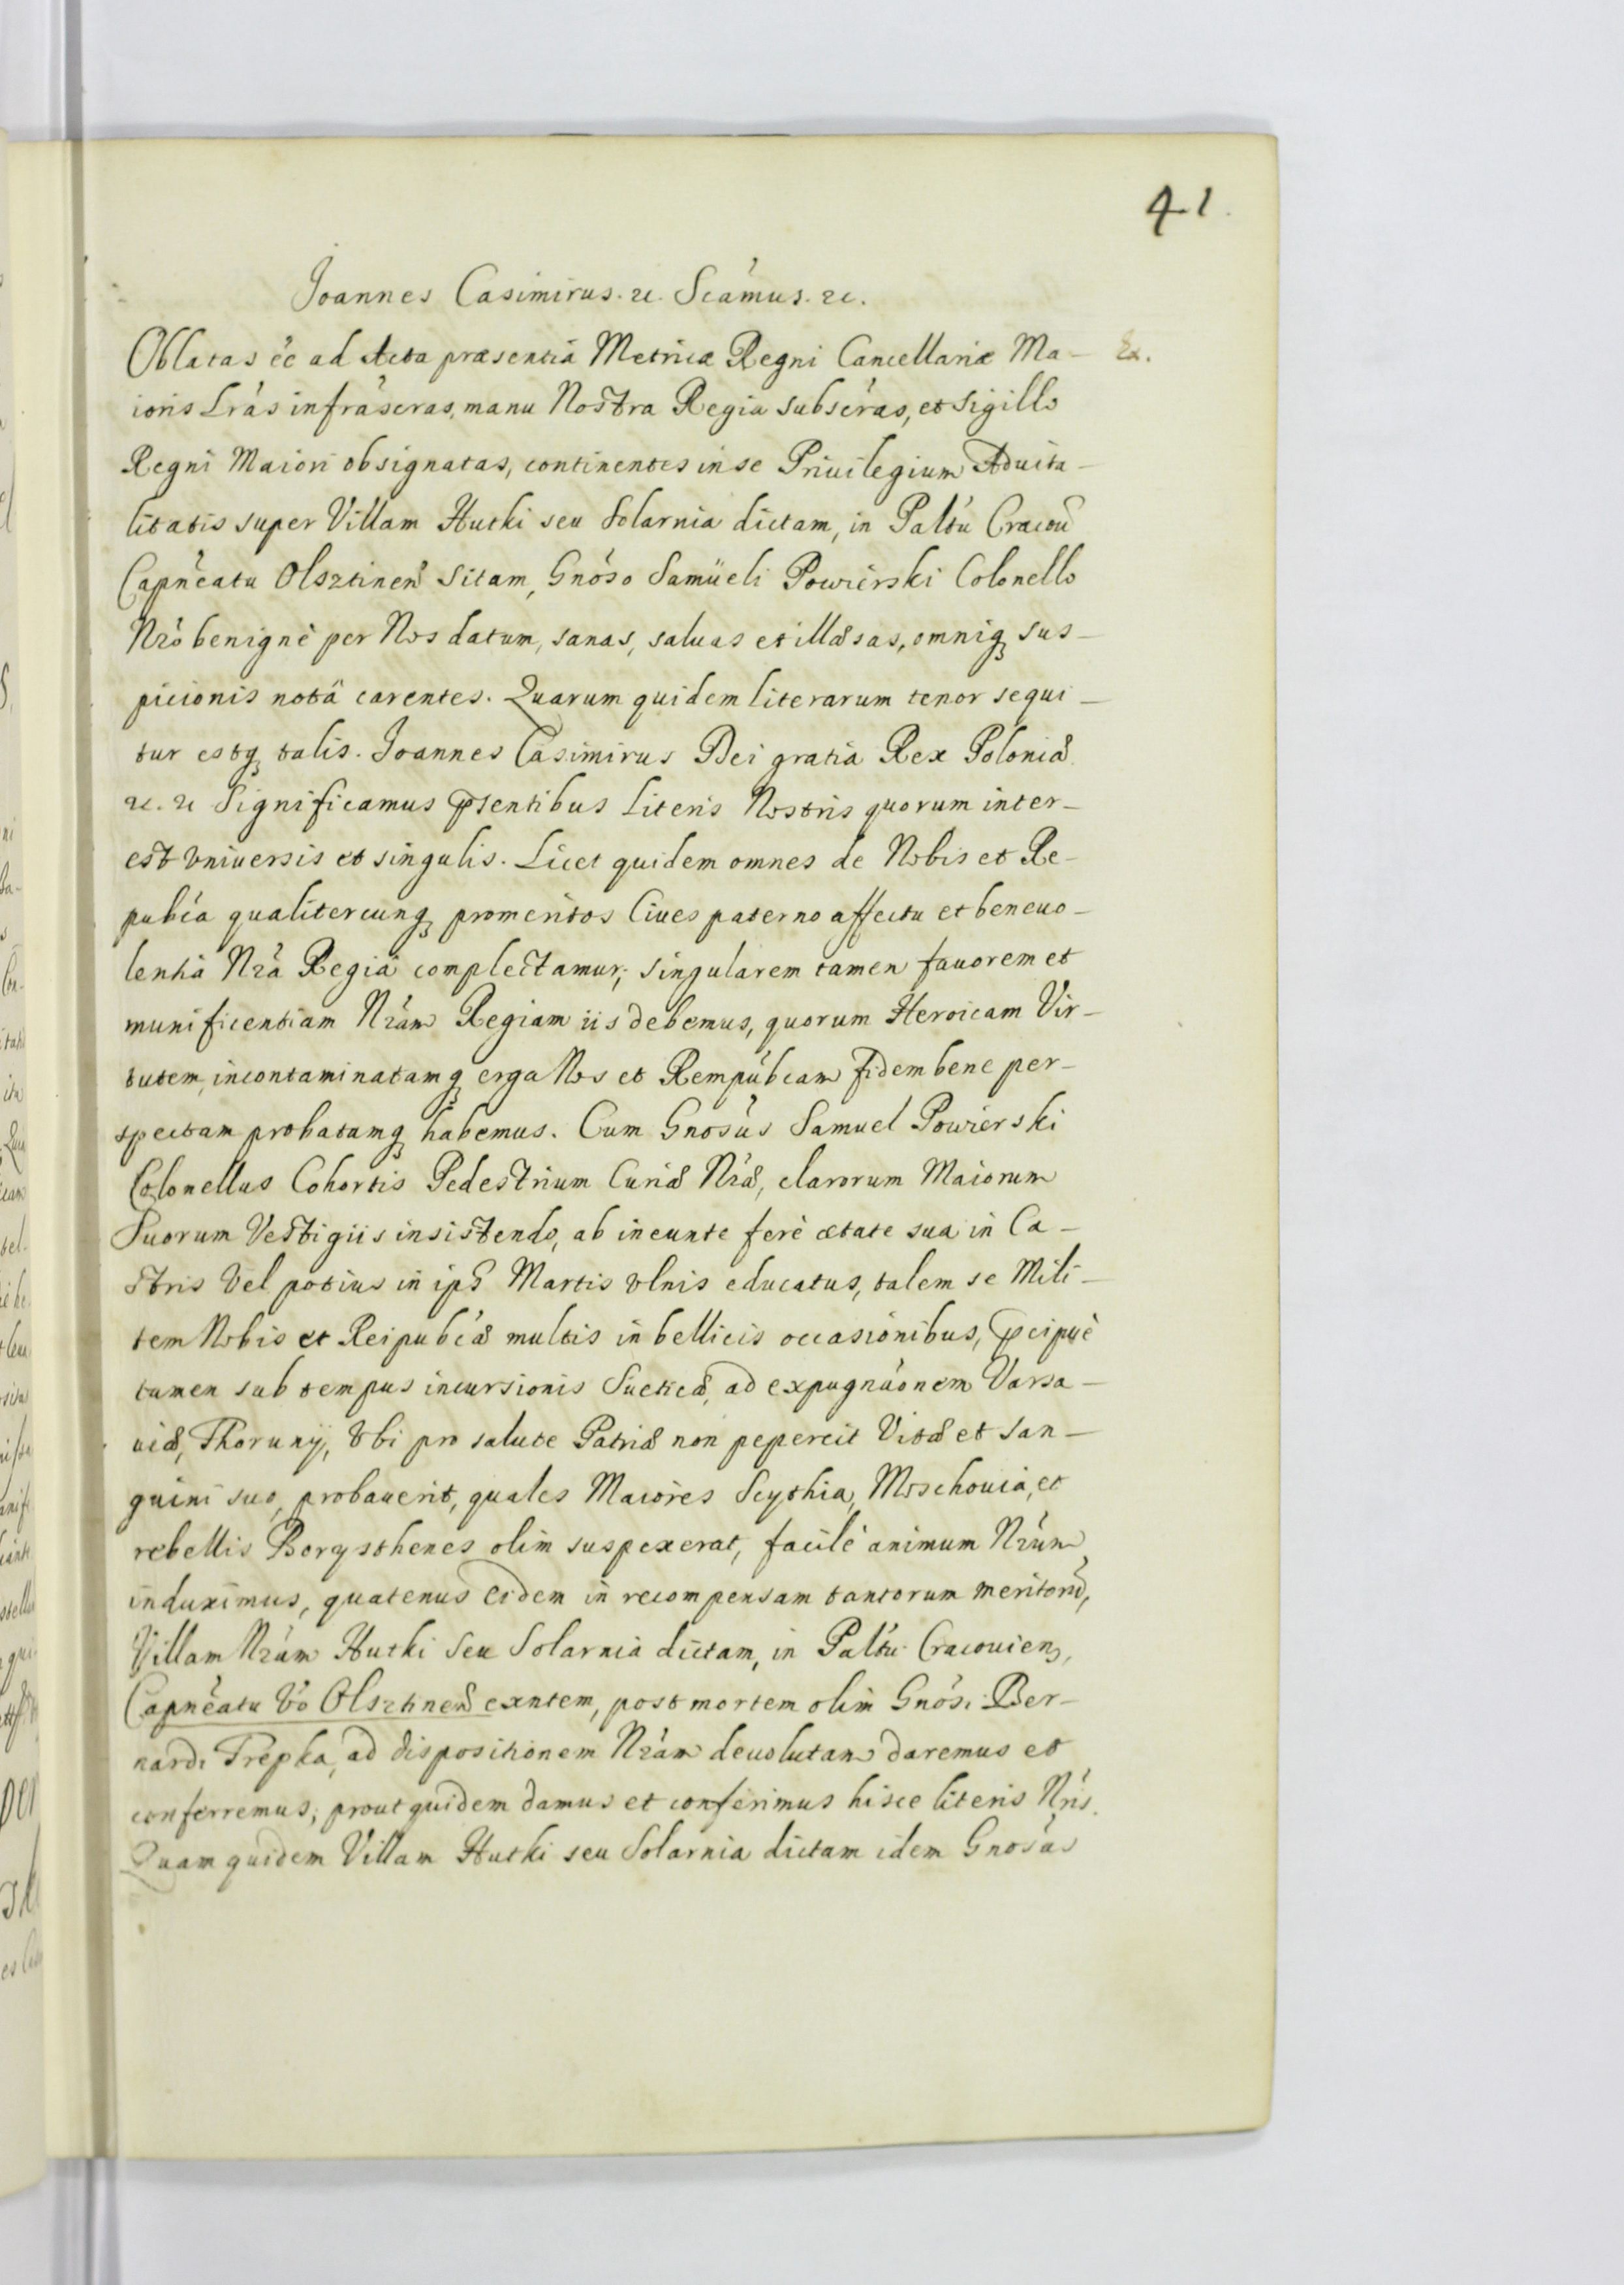 41.
Joannes Casimirus. &c. Scâmus. &c.
Oblatas eê ad Acta præsentiâ Metricæ Regni Cancellariæ Ma- Ex.
ioris Lrâs infrâscras, manu Nostra Regia subscras, et sigillo
Regni Maiori obsignatas, continentes in se Priuilegium Aduita-
litatis super Villam Hutki seu Solarnia dictam, in Paltû Cracoũ
Capñeatu Olsztineñ sitam, Gnôso Samüeli Powierski Colonello
Nrô benignè per Nos datum, sanas, saluas et illæsas, omniq; sus-
picionis notâ carentes. Quarum quidem literarum tenor sequi-
tur estq; talis. Joannes Casimirus Dei gratia Rex Poloniæ
&c. &c Significamus pr̃sentibus Literis Nostris quorum inter-
est vniuersis et singulis. Licet quidem omnes de Nobis et Re-
pubcâ qualitercunq; promeritos Ciues paterno affectu et beneuo-
lentiâ Nrâ Regiâ complectamur; singularem tamen fauorem et
munificentiam Nrâm Regiam iis debemus, quorum Heroicam Vir-
tutem, incontaminatamq; erga Nos et Rempûbcam fidem bene per-
spectam probatamq; habemus. Cum Gnosûs Samuel Powierski
Colonellus Cohortis Pedestrium Curiæ Nræ, clarorum Maiorum
Suorum Vestigiis insistendo, ab ineunte ferè ætate sua in Ca-
stris Vel potius in ips̃ Martis vlnis educatus, talem se Mili-
tem Nobis et Reipubcæ multis in bellicis occasionibus, pr̃cipuè
tamen sub tempus incursionis Sueticæ, ad expugnâonem Varsa-
uiæ, Thorunÿ, Vbi pro salute Patriæ non pepercit Vitæ et san-
guini suo, probauerit, quales Maiores Scythia, Moschouia, et
rebellis Borysthenes olim suspexerat, facilè animum Nrûm
induximus, quatenus eidem in recompensam tantorum meritorũ,
Villam Nrâm Hutki seu Solarnia dictam, in Paltû Cracouien;
Capñeatu Vô Olsztineñ exntem, post mortem olim Gnôsi Ber-
nardi Trepka, ad dispositionem Nrâm deuolutam daremus et
conferremus; prout quidem damus et conferimus hisce literis Nris.
Quam quidem Villam Hutki seu Solarnia dictam idem Gnosûs